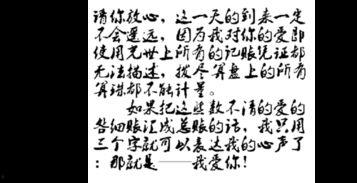 请你放心，这一天的到来一定
不会遥远，因为我对你的爱即
使用光世上所有的记账凭证都
无法描述，拨尽算盘上的所有
算珠都不能计量。
如果把这些数不清的爱的
各细账汇成总账的话，我只用
三个字就可以表达我的心声了
：那就是——我爱你！